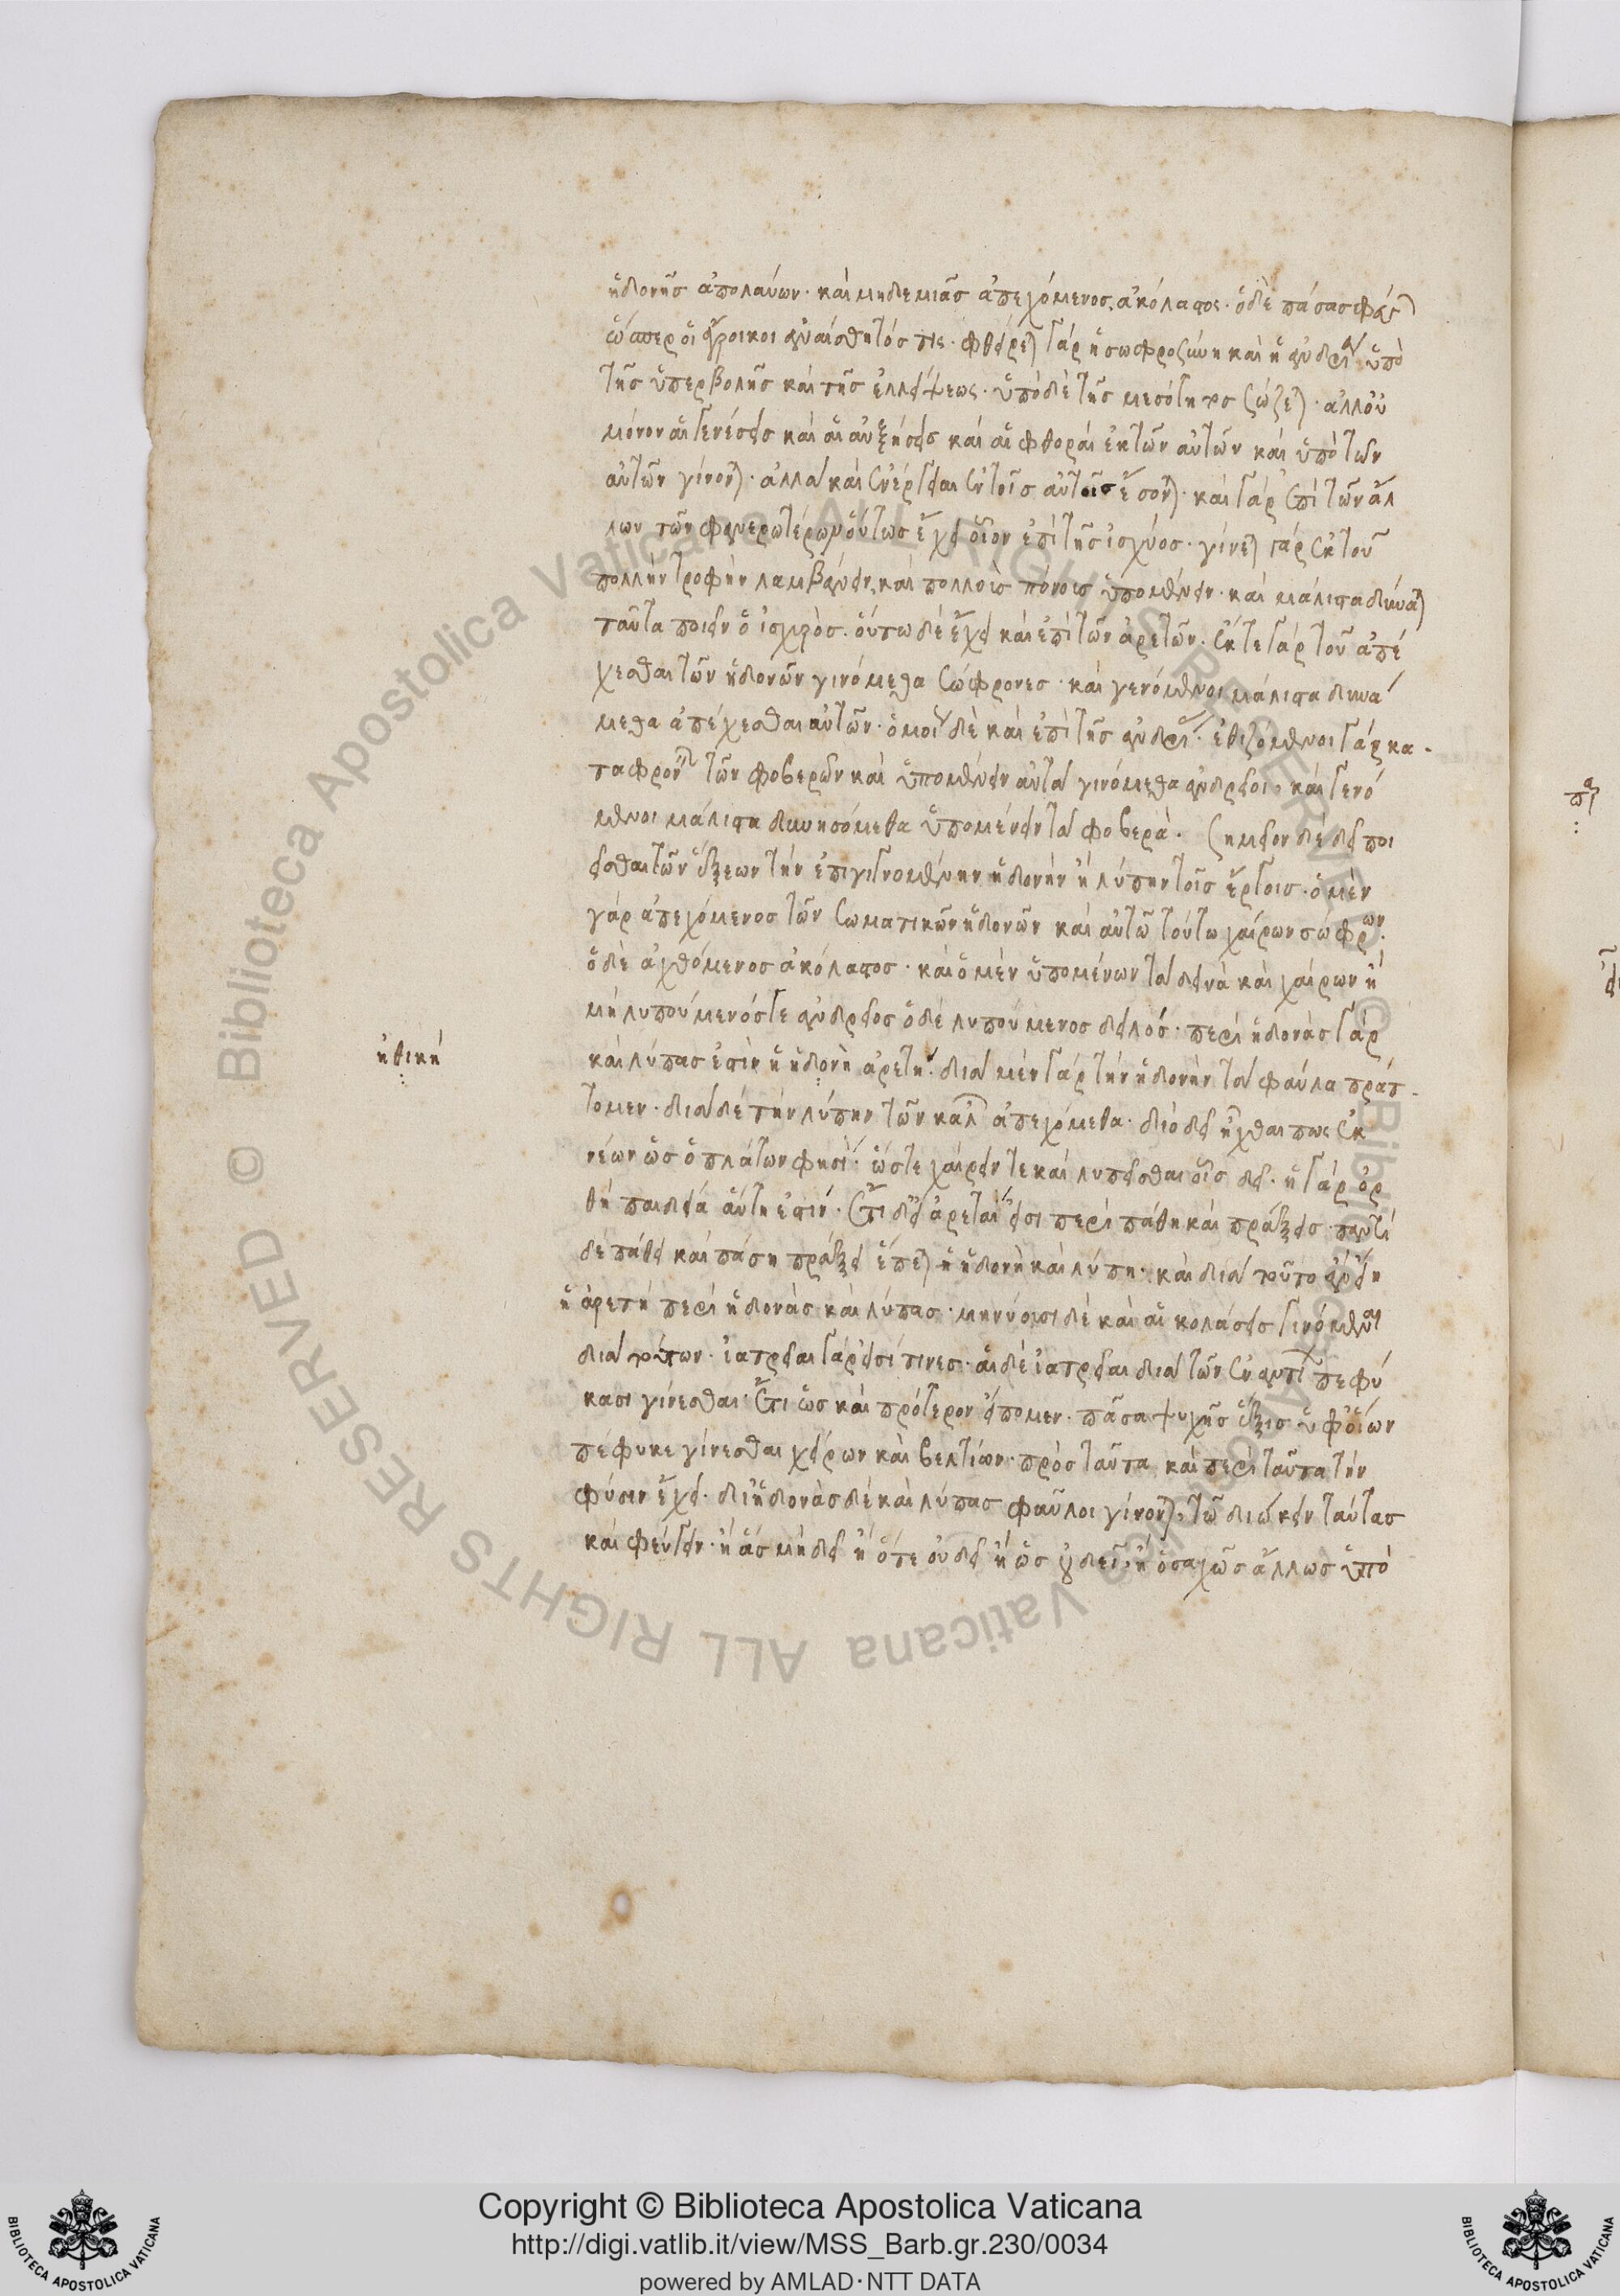 ἡδονῆς ἀπολαύων· καὶ μηδεμιᾶς ἀπεχόμενος, ἀκόλαστος· ὁ δὲ πάσας φεύγων
ὥσπερ οἱ ἄγροικοι ἀναίσθητός τις· φθείρεται γὰρ ἡ σωφροσύνη καὶ ἡ ἀνδρεία ὑπὸ
τῆς ὑπερβολῆς καὶ τῆς ἐλλείψεως· ὑπὸ δὲ τῆς μεσότητος σώζεται· ἀλλ' οὐ
μόνον αἱ γενέσεις καὶ αἱ αὐξήσεις καὶ αἱ φθοραὶ ἐκ τῶν αὐτῶν καὶ ὑπὸ τῶν
αὐτῶν γίνονται· ἀλλὰ καὶ ἐνέργειαι ἐν τοῖς αὐτοῖς ἔσονται· καὶ γὰρ ἐπὶ τῶν ἄλ
λων τῶν φανερωτέρων οὕτως ἔχει οἷον ἐπὶ τῆς ἰσχύος· γίνεται γὰρ ἐκ τοῦ
πολλὴν τροφὴν λαμβάνειν, καὶ πολλοὺς πόνους ὑπομένειν· καὶ μάλιστα δύναται
ταῦτα ποιεῖν ὁ ἰσχυρός· οὕτω δὲ ἔχει καὶ ἐπὶ τῶν ἀρετῶν· ἔκ τε γὰρ τοῦ ἀπέ
χεσθαι τῶν ἡδονῶν γινόμεθα σώφρονες· καὶ γενόμενοι μάλιστα δυνά
μεθα ἀπέχεσθαι αὐτῶν· ὁμοίως δὲ καὶ ἐπὶ τῆς ἀνδρείας· ἐθιζόμενοι γὰρ κα-
ταφρονεῖν τῶν φοβερῶν καὶ ὑπομένειν αὐτὰ γινόμεθα ἀνδρεῖοι, καὶ γενό
μενοι μάλιστα δυνησόμεθα ὑπομένειν τὰ φοβερά. Σημεῖον δὲ δεῖ ποι
εῖσθαι τῶν ἕξεων τὴν ἐπιγιγνομένην ἡδονὴν ἢ λύπην τοῖς ἔργοις· ὁ μὲν
γὰρ ἀπεχόμενος τῶν σωματικῶν ἡδονῶν καὶ αὐτῷ τούτῳ χαίρων σώφρων·
ὁ δὲ ἀχθόμενος ἀκόλαστος· καὶ ὁ μὲν ὑπομένων τὰ δεινὰ καὶ χαίρων ἢ
μὴ λυπούμενός γε ἀνδρεῖος ὁ δὲ λυπούμενος δειλός· περὶ ἡδονὰς γὰρ
ἠθικὴ
καὶ λύπας ἐστὶν ἡ ἡδονὴ ἀρετή· διὰ μὲν γὰρ τὴν ἡδονὴν τὰ φαῦλα πράτ-
τομεν· διὰ δὲ τὴν λύπην τῶν καλῶν ἀπεχόμεθα· διὸ δεῖ ἦχθαι πως ἐκ
νέων ὡς ὁ πλάτων φησίν· ὥστε χαίρειν τε καὶ λυπεῖσθαι οἷς δεῖ· ἡ γὰρ ὀρ
θὴ παιδεία αὕτη ἐστίν· Ἔτι δ' εἰ ἀρεταί εἰσι περὶ πάθη καὶ πράξεις· παντὶ
δὲ πάθει καὶ πάσῃ πράξει ἕπεται ἡ ἡδονὴ καὶ λύπη· καὶ διὰ τοῦτο ἂν εἴη
ἡ ἀρετὴ περὶ ἡδονὰς καὶ λύπας· μηνύουσι δὲ καὶ αἱ κολάσεις γινόμεναι
διὰ τούτων· ἰατρεῖαι γάρ εἰσί τινες· αἱ δὲ ἰατρεῖαι διὰ τῶν ἐναντίων πεφύ
κασι γίνεσθαι· Ἔτι ὡς καὶ πρότερον εἴπομεν· πᾶσα ψυχῆς ἕξις ὑφ' οἵων
πέφυκε γίνεσθαι χείρων καὶ βελτίων· πρὸς ταῦτα, καὶ περὶ ταῦτα τὴν
φύσιν ἔχει· δι' ἡδονὰς δὲ καὶ λύπας φαῦλοι γίνονται, τῷ διώκειν ταύτας
καὶ φεύγειν· ἢ ἃς μὴ δεῖ ἢ ὅτε οὐ δεῖ ἢ ὡς οὐ δεῖ, ἢ ὁσαχῶς ἄλλως ὑπὸ
© Biblioteca Apostolica Vaticana ALL RIGHTS RESERVED
Copyright © Biblioteca Apostolica Vaticana
http://digi.vatlib.it/view/MSS_Barb.gr.230/0034
powered by AMLAD·NTT DATA
BIBLIOTECA APOSTOLICA VATICANA
BIBLIOTECA APOSTOLICA VATICANA